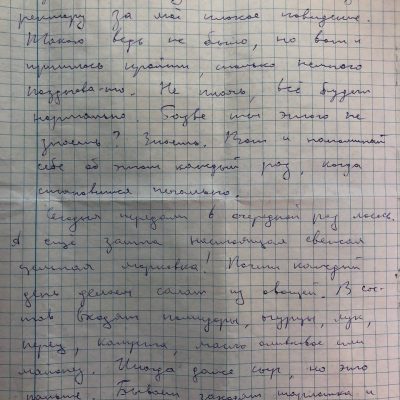 за моё плохое поведение.
Такого ведь не было, но вот и
пришлось пройти, только немного
Не плачь, всё будет
нормально. Разве ты этого не
знаешь? Знаешь. Вот и напоминай
себе об этом каждый раз, когда
становится печально.
Сегодня передали в очередной раз лосось.
А ещё зашла настоящая свежая
цельная морковка! Почти каждый
день делаем салат из овощей. В сос-
тав входят помидоры, огурцы, лук,
перец, капуста, масло оливковое или
майонез. Иногда даже сыр, но это
раньше. Бывает заходят картошка и